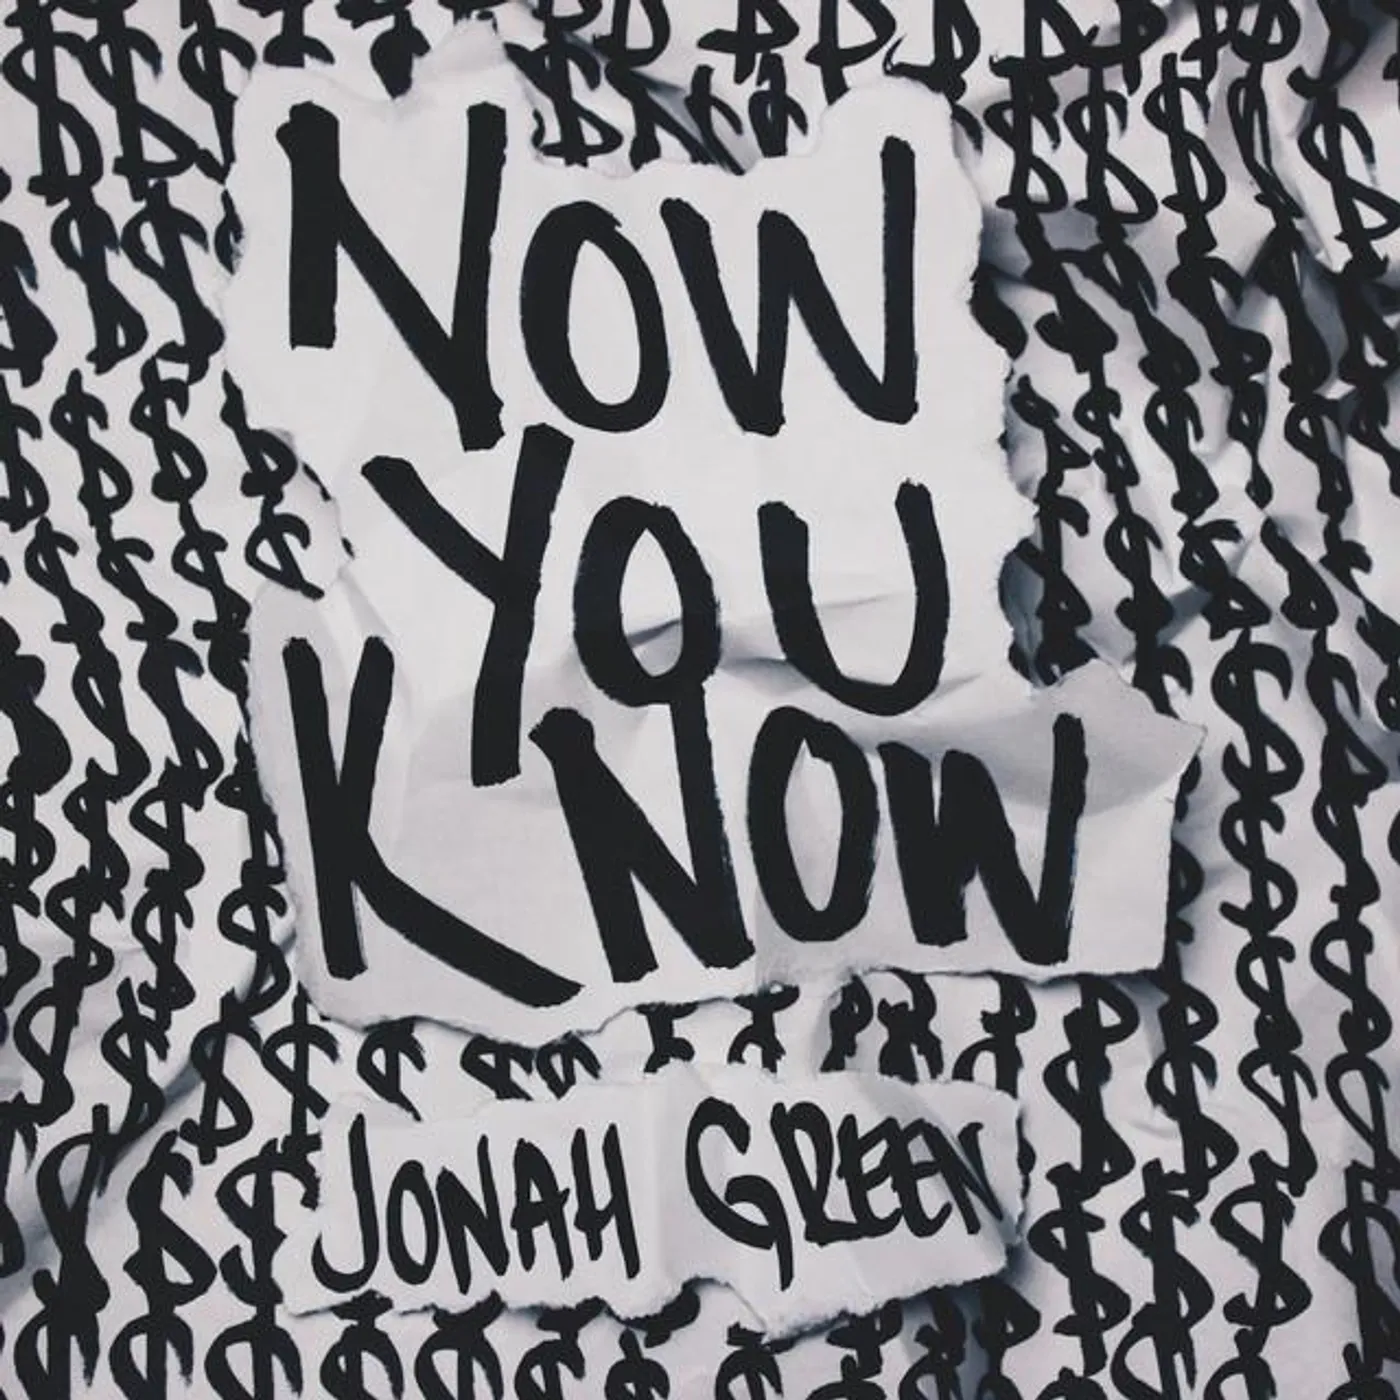 NOW
YOU
KNOW
JONAH GREEN